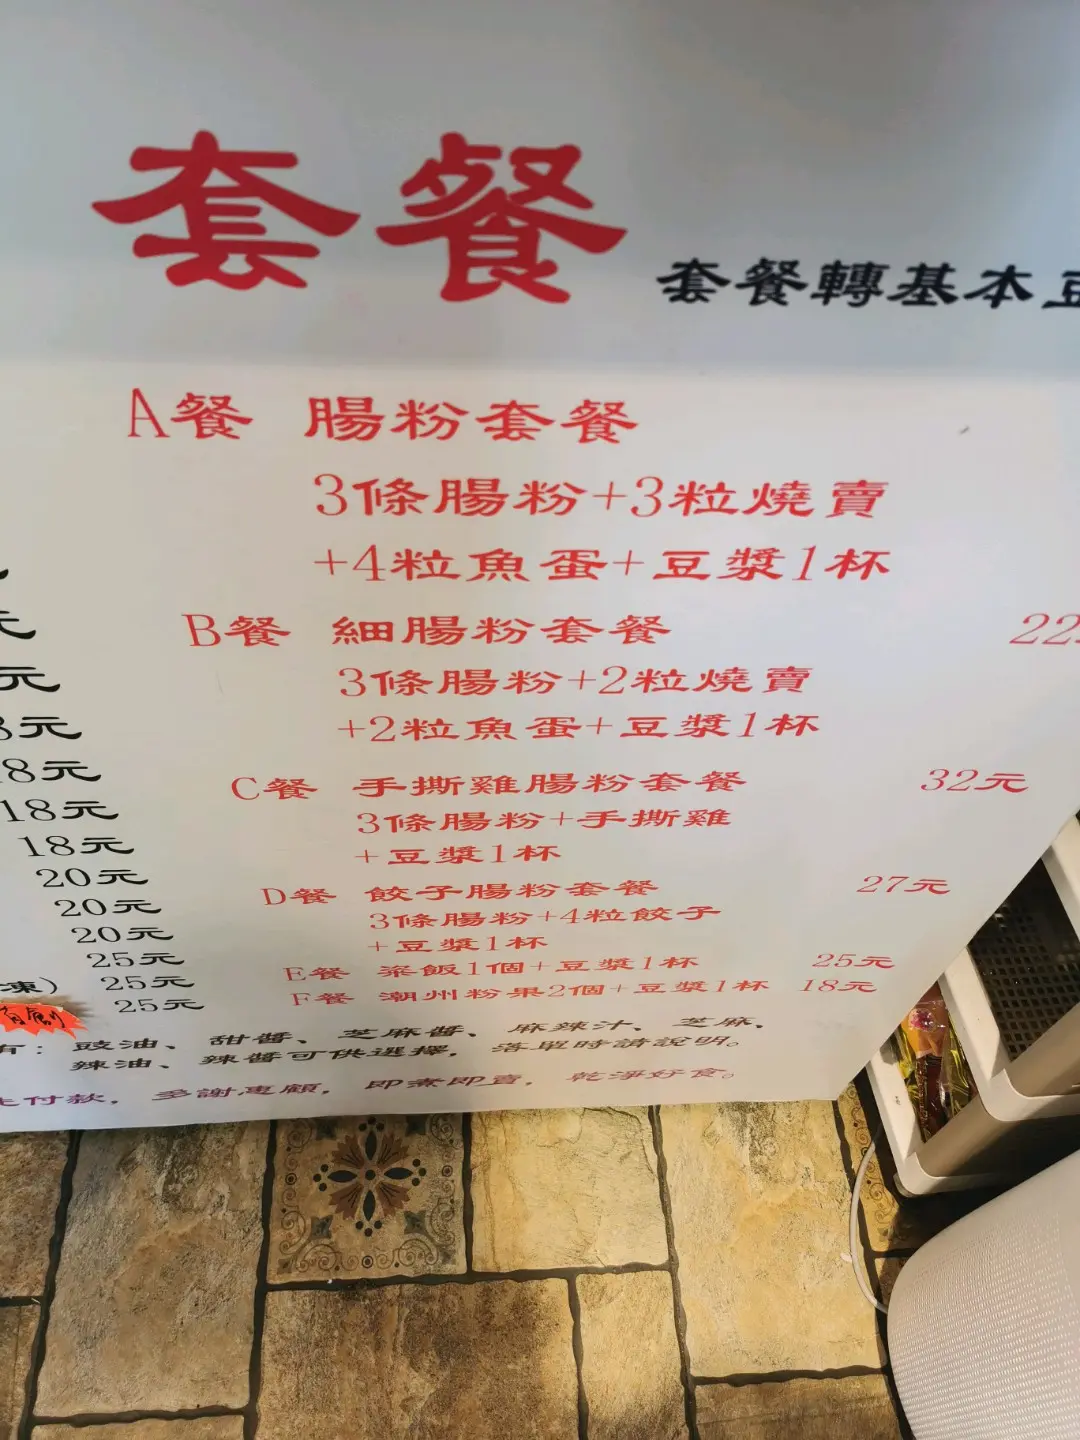 套餐
套餐轉基本
A餐 腸粉套餐
3條腸粉+3粒燒賣
+4粒魚蛋+豆漿1杯
B餐 細腸粉套餐 22
3條腸粉+2粒燒賣
+2粒魚蛋+豆漿1杯
C餐 手撕雞腸粉套餐 32元
3條腸粉+手撕雞
+豆漿1杯
D餐 餃子腸粉套餐 27元
3條腸粉+4粒餃子
+豆漿1杯
E餐 粢飯1個+豆漿1杯 25元
F餐 潮州粉果2個+豆漿1杯 18元
元
元
8元
18元
18元
18元
20元
20元
20元
25元
凍) 25元
25元
有：豉油、甜醬、芝麻醬、麻辣汁、芝麻，
辣油、辣醬可供選擇，落單時請說明。
付款，多謝惠顧，即煮即賣，乾淨好食。